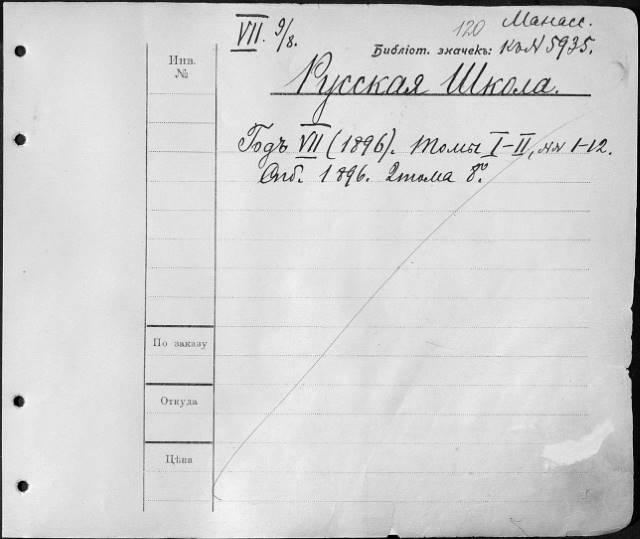 VII. 9/8.
120 Манасс.
Библіот. значекъ: Къ N 5935.
Инв. №
Русская Школа.
Годъ VII (1896). Томы I–II, №№ 1-12.
Спб. 1896. 2 тома 8º.
По заказу
Откуда
Цѣна